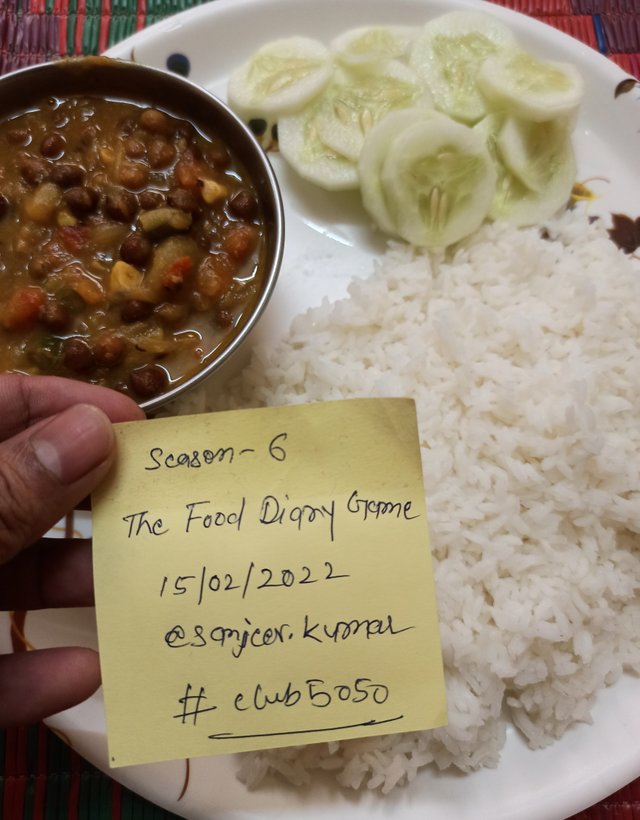 Season-6
The Food Diary Game
15/02/2022
@sanjeev.kumar
# club5050